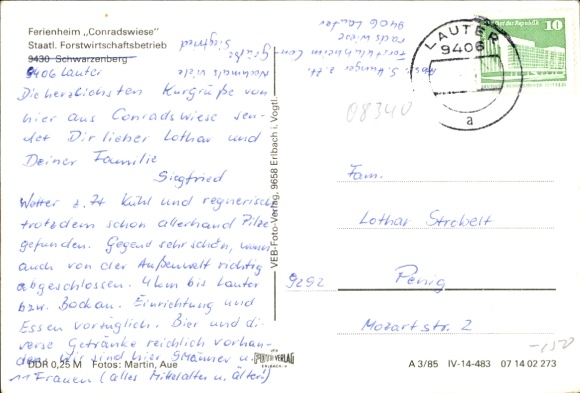 Ferienheim „Conradswiese"
Staatl. Forstwirtschaftsbetrieb
9430 Schwarzenberg
9406 Lauter
Die herzlichsten Kurgrüße von
hier aus Conradswiese sen-
det Dir lieber Lothar und
Deiner Familie
Siegfried
Wetter z. Zt kühl und regnerisch
trotzdem schon allerhand Pilze
gefunden. Gegend sehr schön, wenn
auch von der Außenwelt richtig
abgeschlossen. 4 km bis Lauter
bzw. Bockau. Einrichtung und
Essen vorzüglich. Bier und di-
verse Getränke reichlich vorhan-
den. Wir sind hier 9 Männer u.
11 Frauen (alles Mittelalter u. älter!)
Nochmals viele
Grüße
Siegfried
DDR 0,25 M Fotos: Martin, Aue
VEB-Foto-Verlag, 9658 Erlbach i. Vogtl.
FOTO VERLAG
ERLBACH
Absr. S. z. Zt.
radswiese
9406 Lauter
LAUTER
9406
a
10
08340
Fam.
Lothar Strebelt
9292 Penig
Mozartstr. 2
-,50
A 3/85 IV-14-483 07 14 02 273